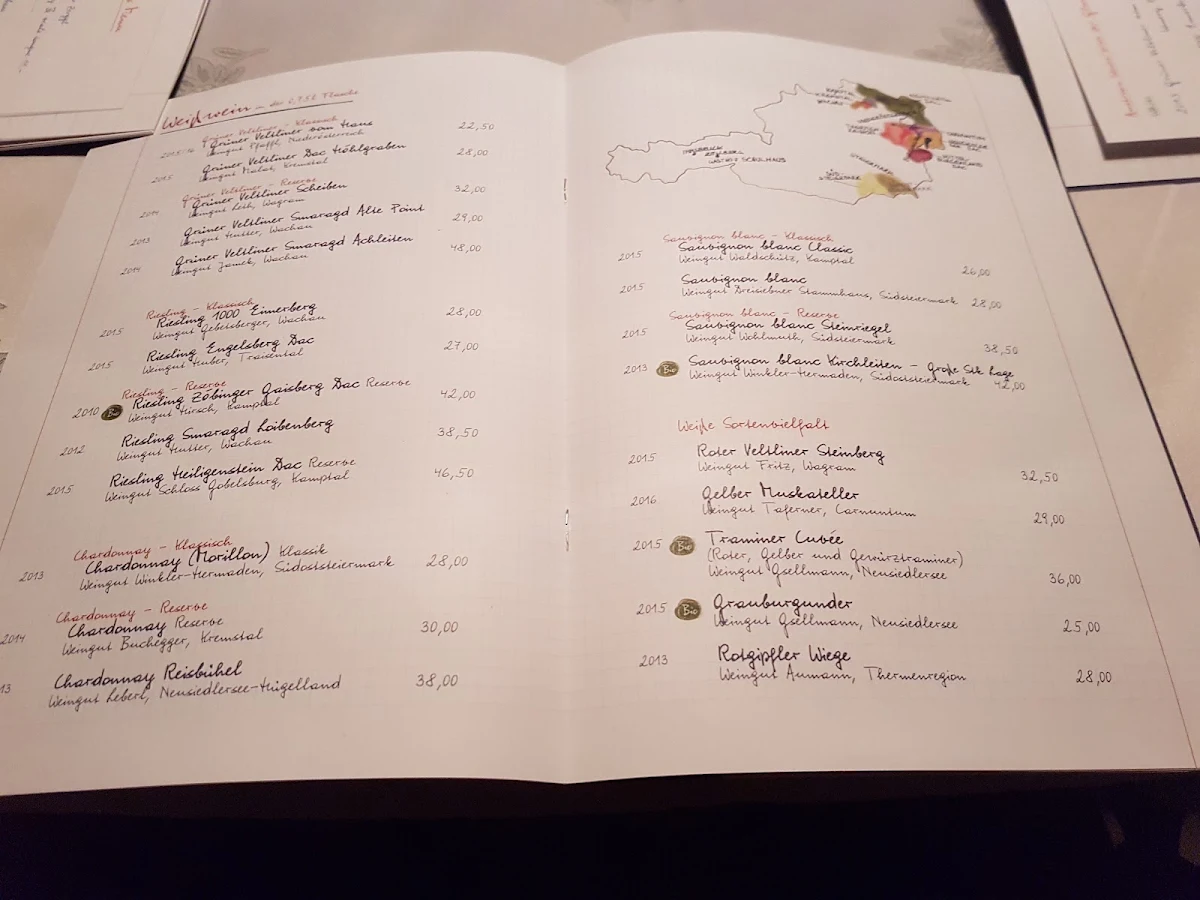 Weißwein – die 0,75l Flasche
Grüner Veltliner – Klassisch
Grüner Veltliner vom Haus 22,50
Weingut Pfaffl, Niederösterreich
2015 Grüner Veltliner Dac Höhlgraben 28,00
Weingut Malat, Kremstal
Grüner Veltliner – Reserve
2014 Grüner Veltliner Scheiben 32,00
Weingut Leth, Wagram
2013 Grüner Veltliner Smaragd Alte Point 29,00
Weingut Hutter, Wachau
2014 Grüner Veltliner Smaragd Achleiten 48,00
Weingut Jamek, Wachau
Riesling – Klassisch
2015 Riesling 1000 Eimerberg 28,00
Weingut Gebelsberger, Wachau
2015 Riesling Engelsberg Dac 27,00
Weingut Huber, Traisental
Riesling – Reserve
2010 Bio Riesling Zöbinger Gaisberg Dac Reserve 42,00
Weingut Hirsch, Kamptal
2012 Riesling Smaragd Loibenberg 38,50
Weingut Hutter, Wachau
2015 Riesling Heiligenstein Dac Reserve 46,50
Weingut Schloss Gobelsburg, Kamptal
Chardonnay – Klassisch
2013 Chardonnay (Morillon) Klassik 28,00
Weingut Winkler-Hermaden, Südoststeiermark
Chardonnay – Reserve
2014 Chardonnay Reserve 30,00
Weingut Buchegger, Kremstal
13 Chardonnay Reisbühel 38,00
Weingut Leberl, Neusiedlersee-Hügelland
Innsbruck
Wirtshaus Schöneck
Sauvignon blanc – Klassisch
2015 Sauvignon blanc Classic 26,00
Weingut Waldschütz, Kamptal
2015 Sauvignon blanc 28,00
Weingut Dreisiebner Stammhaus, Südsteiermark
Sauvignon blanc – Reserve
2015 Sauvignon blanc Steinriegel 38,50
Weingut Wohlmuth, Südsteiermark
2013 Bio Sauvignon blanc Kirchleiten – große Stk Lage 42,00
Weingut Winkler-Hermaden, Südoststeiermark
Weiße Sortenvielfalt
2015 Roter Veltliner Steinberg 32,50
Weingut Fritz, Wagram
2016 Gelber Muskateller 29,00
Weingut Taferner, Carnuntum
2015 Bio Traminer Cuvée
(Roter, Gelber und Gewürztraminer)
Weingut Gsellmann, Neusiedlersee 36,00
2015 Bio Grauburgunder
Weingut Gsellmann, Neusiedlersee 25,00
2013 Rotgipfler Wiege
Weingut Aumann, Thermenregion 28,00